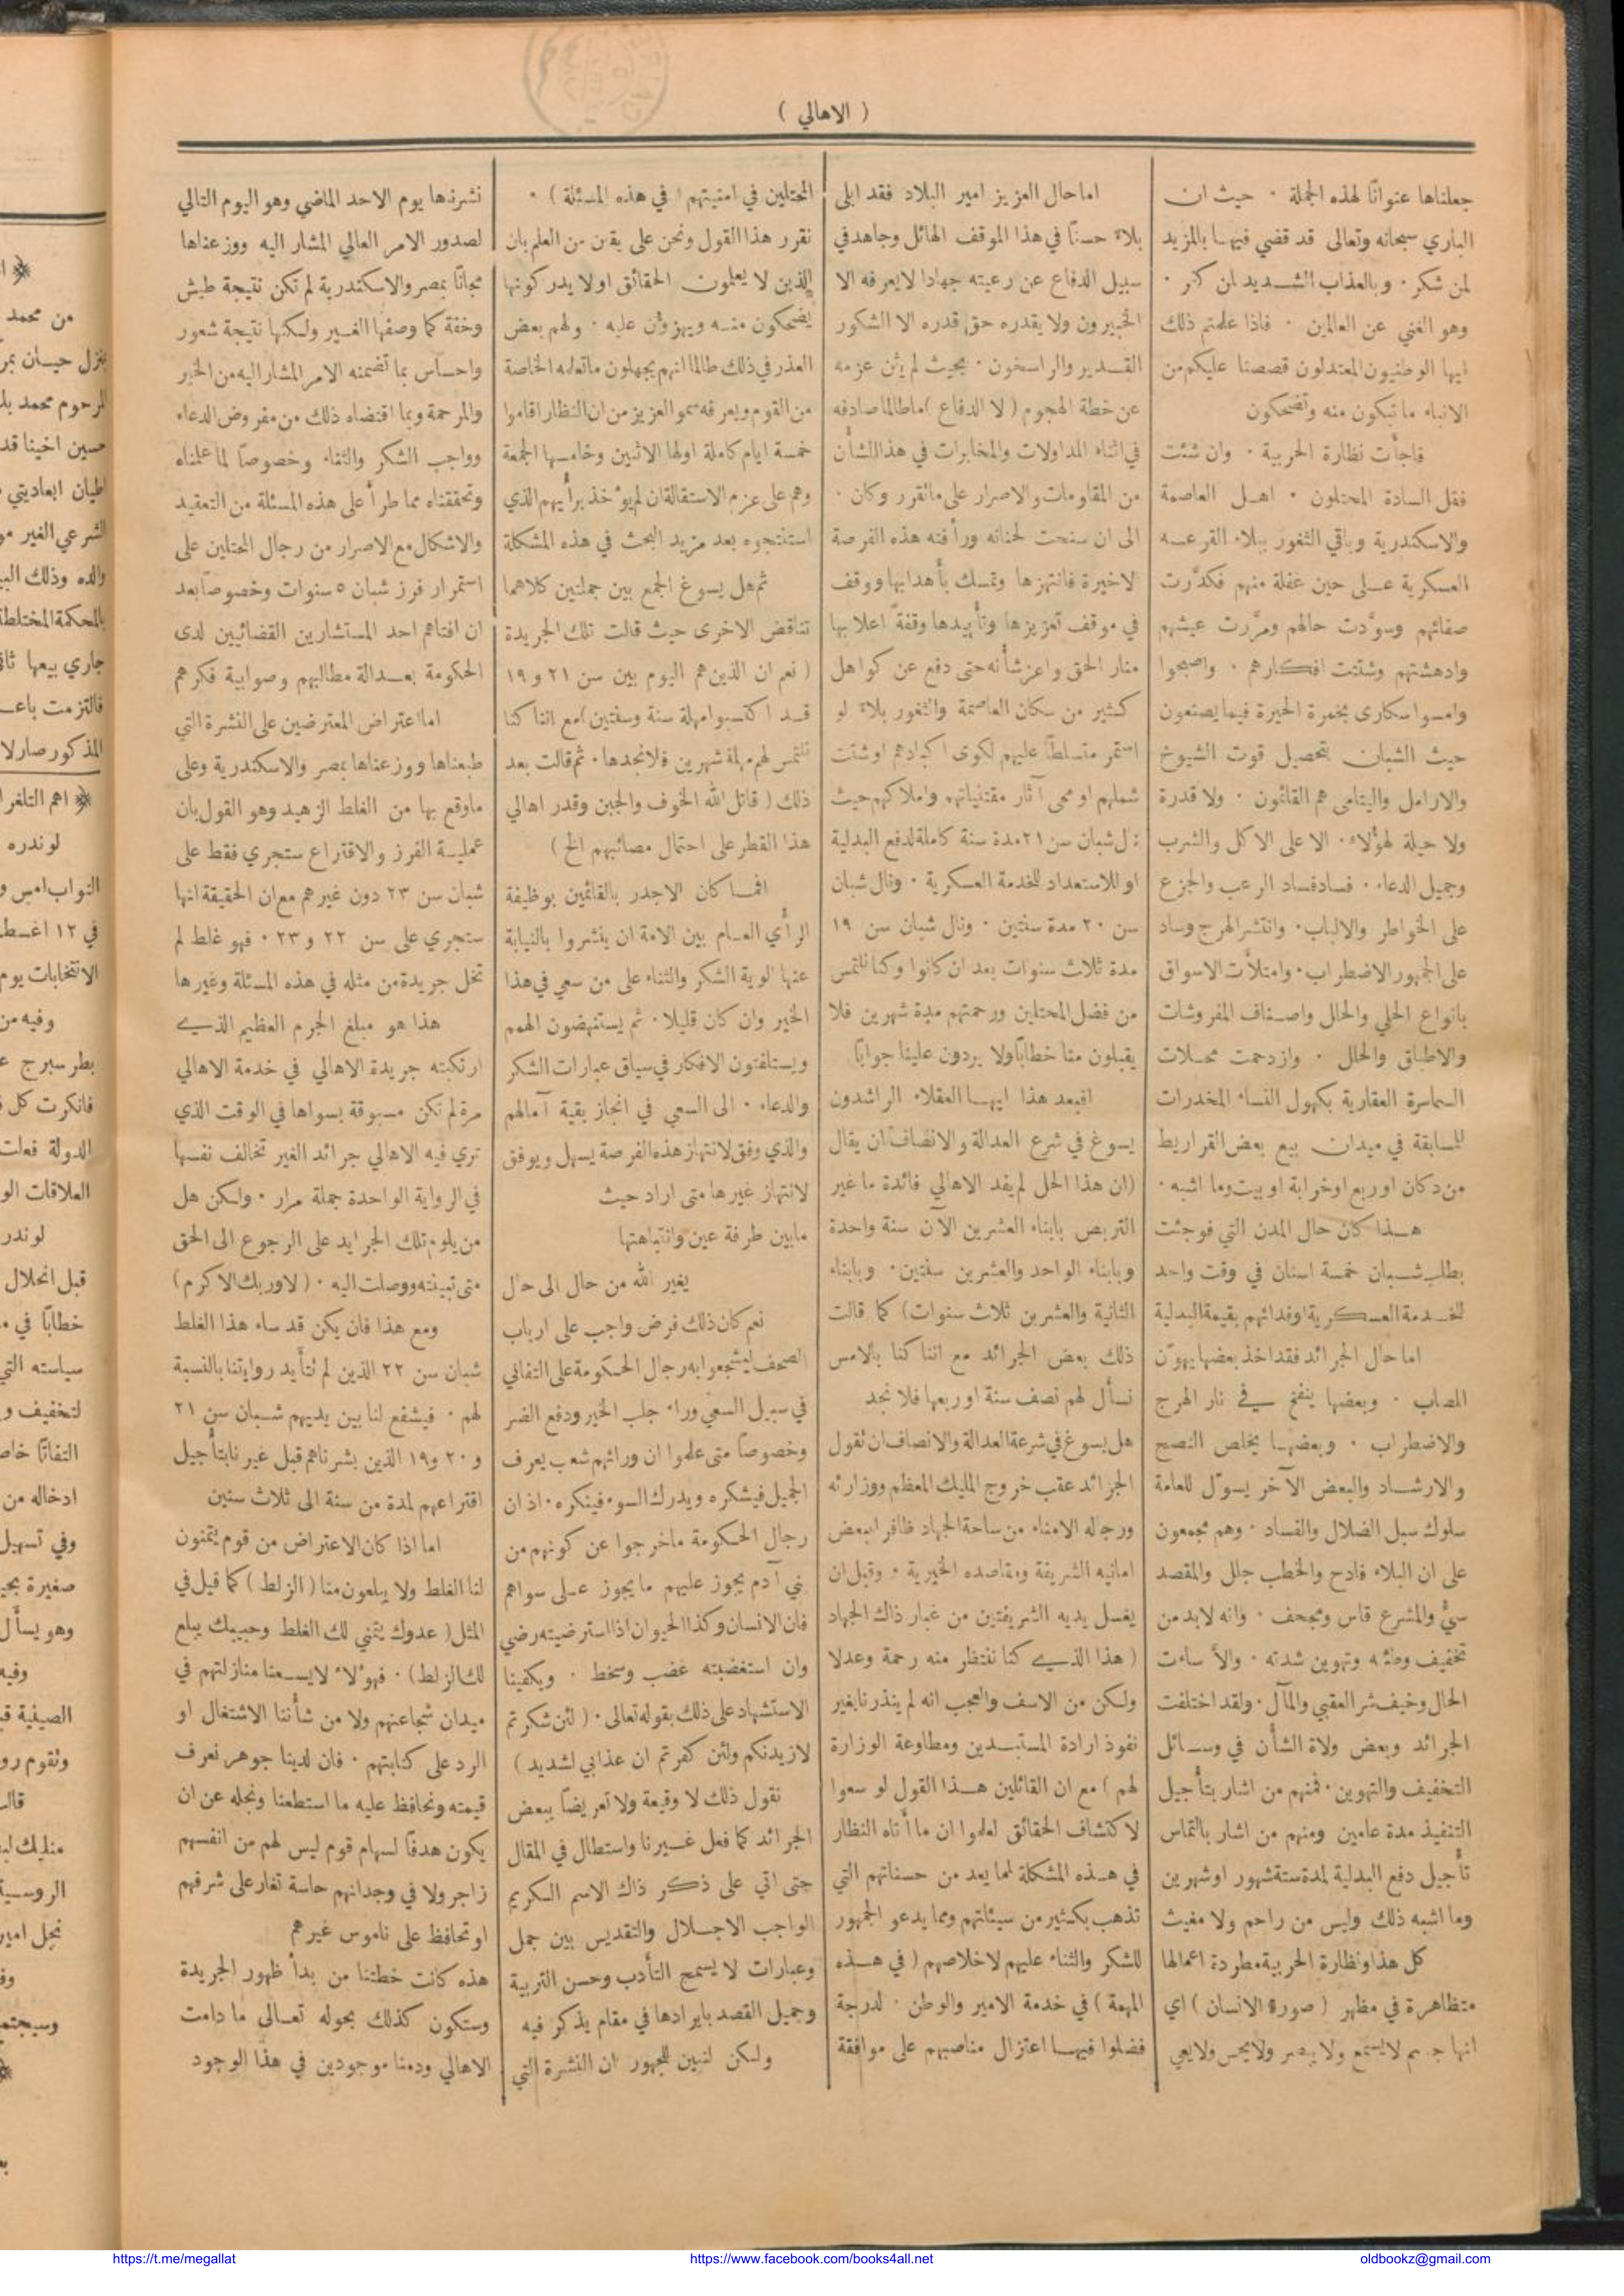 ( الاهالي )
جعلناها عنوانًا لهذه الجملة · حيث ان
الباري سبحانه وتعالى قد قضي فيها بالمزيد
لمن شكر · وبالعذاب الشديد لمن كفر ·
وهو الغني عن العالمين · فاذا علمتم ذلك
ايها الوطنيون المعتدلون قصصنا عليكم من
الانباء ما تبكون منه وتضحكون
فاجأت نظارة الحربية · وان شئت
فقل السادة المحتلون · اهل العاصمة
والاسكندرية وباقي الثغور ببلاء القرعه
العسكرية على حين غفلة منهم فكدَّرت
صفائهم وسوَّدت حالهم ومرَّرت عيشهم
وادهشتهم وشتت افكارهم · واصبحوا
وامسوا سكارى بخمرة الحيرة فيما يصنعون
حيث الشبان بتحصيل قوت الشيوخ
والارامل واليتامى هم القائمون · ولا قدرة
ولا حيلة لهؤلاء · الا على الاكل والشرب
وجميل الدعاء · فساد فساد الرعب والجزع
على الخواطر والالباب · وانتشر الهرج وساد
على الجمهور الاضطراب · وامتلأت الاسواق
بانواع الحلي والحلل واصناف المفروشات
والاطباق والحلل · وازدحمت محلات
السماسرة العقارية بكهول النساء المخدرات
للمسابقة في ميدان بيع بعض القراريط
من دكان او ربع او خرابة او بيت وما اشبه ·
هذا كان حال المدن التي فوجئت
بطلب شبان خمسة اسنان في وقت واحد
للخدمة العسكرية او فدائهم بقيمة البدلية
اما حال الجرائد فقد اخذ بعضها يهوّن
المصاب · وبعضها ينفخ في نار الهرج
والاضطراب · وبعضها يخلص النصح
والارشاد والبعض الآخر يسوّل للعامة
سلوك سبل الضلال والفساد · وهم مجمعون
على ان البلاء فادح والخطب جلل والمقصد
سيُّ والمشرع قاس ومجحف · وانه لابد من
تخفيف وطئه وتهوين شدته · والاَّ ساءت
الحال وخيف شر العقبي والمآل · ولقد اختلفت
الجرائد وبعض ولاة الشأن في وسائل
التخفيف والتهوين · فمنهم من اشار بتأجيل
التنفيذ مدة عامين ومنهم من اشار بالتماس
تأجيل دفع البدلية لمدة ستة شهور او شهرين
وما اشبه ذلك وليس من راحم ولا مغيث
كل هذا ونظارة الحربية مطردة اعمالها
متظاهرة في مظهر ( صورة الانسان ) اي
انها جسم لا يسمع ولا يبصر ولا يحس ولا يعي
اما حال العزيز امير البلاد فقد ابلى
بلاءً حسنًا في هذا الموقف الهائل وجاهد في
سبيل الدفاع عن رعيته جهادا لا يعرفه الا
الخبيرون ولا يقدره حق قدره الا الشكور
القدير والراسخون · بحيث لم يثن عزمه
عن خطة الهجوم ( لا الدفاع ) ما طالما صادفه
في اثناء المداولات والمخابرات في هذا الشأن
من المقاومات والاصرار على ما تقرر وكان ·
الى ان سنحت لحنانه ورأفته هذه الفرصة
لاخيرة فانتهزها وتمسك بأهدابها ووقف
في موقف تعزيزها وتأييدها وقفةً اعلا بها
منار الحق واعز شأنه حتى دفع عن كواهل
كثير من سكان العاصمة والثغور بلاءً لو
استمر متسلطًا عليهم لكوى اكبادهم او شتت
شملهم او محى آثار مقتنياتهم واملاكهم حيث
نال شبان سن ٢١ مدة سنة كاملة لدفع البدلية
او للاستعداد للخدمة العسكرية · ونال شبان
سن ٢٠ مدة سنتين · ونال شبان سن ١٩
مدة ثلاث سنوات بعد ان كانوا وكنا نلتمس
من فضل المحتلين ورحمتهم مدة شهرين فلا
يقبلون منا خطابًا ولا يردون علينا جوابًا
افبعد هذا ايها العقلاء الراشدون
يسوغ في شرع العدالة والانصاف ان يقال
(ان هذا الحل لم يفد الاهالي فائدة ما غير
التربص بابناء العشرين الآن سنة واحدة
وبابناء الواحد والعشرين سنتين · وبابناء
الثانية والعشرين ثلاث سنوات) كما قالت
ذلك بعض الجرائد مع اننا كنا بالامس
نسأل لهم نصف سنة او ربعها فلا نجد
هل يسوغ في شرعة العدالة والانصاف ان نقول
الجرائد عقب خروج المليك المعظم ووزارته
ورجاله الامناء من ساحة الجهاد ظافرا ببعض
امانيه الشريفة ومقاصده الخيرية · وقبل ان
يغسل يديه الشريفتين من غبار ذاك الجهاد
( هذا الذي كنا ننتظر منه رحمة وعدلا
ولكن من الاسف والعجب انه لم ينذرنا بغير
نفوذ ارادة المستبدين ومطاوعة الوزارة
لهم ) مع ان القائلين هذا القول لو سعوا
لاكتشاف الحقائق لعلموا ان ما أتاه النظار
في هذه المشكلة لمما يعد من حسناتهم التي
تذهب بكثير من سيئاتهم ومما يدعو الجمهور
للشكر والثناء عليهم لاخلاصهم ( في هذه
المهمة ) في خدمة الامير والوطن · لدرجة
فضلوا فيها اعتزال مناصبهم على موافقة
المحتلين في امنيتهم ( في هذه المسئلة ) ·
نقرر هذا القول ونحن على يقين من العلم بان
الذين لا يعلمون الحقائق او لا يدركونها
يضحكون منه ويهزؤن عليه · ولهم بعض
العذر في ذلك طالما انهم يجهلون ما تعلمه الخاصة
من القوم ويعرفه سمو العزيز من ان النظار اقاموا
خمسة ايام كاملة اولها الاثنين وخامسها الجمعة
وهم على عزم الاستقالة ان لم يؤخذ برأيهم الذي
استنتجوه بعد مزيد البحث في هذه المشكلة
ثم هل يسوغ الجمع بين جملتين كلاهما
تناقض الاخرى حيث قالت تلك الجريدة
( نعم ان الذين هم اليوم بين سن ٢١ و ١٩
قد اكتسبوا مهلة سنة وسنتين) مع اننا كنا
نلتمس لهم مهلة شهرين فلا نجدها · ثم قالت بعد
ذلك ( قاتل الله الخوف والجبن وقدر اهالي
هذا القطر على احتمال مصائبهم الخ )
افما كان الاجدر بالقائمين بوظيفة
الرأي العام بين الامة ان ينشروا بالنيابة
عنها الوية الشكر والثناء على من سعي في هذا
الخير وان كان قليلا · ثم يستنهضون الهمم
ويستلفتون الافكار في سياق عبارات الشكر
والدعاء · الى السعي في انجاز بقية آمالهم
والذي وفق لانتهاز هذه الفرصة يسهل ويوفق
لانتهاز غيرها متى اراد حيث
مابين طرفة عين وانتباهتها
يغير الله من حال الى حال
نعم كان ذلك فرض واجب على ارباب
الصحف ليشجعوا به رجال الحكومة على التفاني
في سبيل السعي وراء جلب الخير ودفع الضر
وخصوصًا متى علموا ان ورائهم شعب يعرف
الجميل فيشكره ويدرك السوء فينكره · اذ ان
رجال الحكومة ما خرجوا عن كونهم من
بني آدم يجوز عليهم ما يجوز على سواهم
فان الانسان وكذا الحيوان اذا استرضيته رضي
وان استغضبته غضب وسخط · ويكفينا
الاستشهاد على ذلك بقوله تعالى · ( لئن شكرتم
لازيدنكم ولئن كفرتم ان عذابي لشديد )
نقول ذلك لا وقيعة ولا تعريضًا ببعض
الجرائد كما فعل غيرنا واستطال في المقال
حتى اتي على ذكر ذاك الاسم الكريم
الواجب الاجلال والتقديس بين جمل
وعبارات لا يسمح التأدب وحسن التربية
وجميل القصد بايرادها في مقام يذكر فيه
ولكن لنبين للجمهور ان النشرة التي
نشرناها يوم الاحد الماضي وهو اليوم التالي
لصدور الامر العالي المشار اليه ووزعناها
مجانًا بمصر والاسكندرية لم تكن نتيجة طيش
وخفة كما وصفها الغير ولكنها نتيجة شعور
واحساس بما تضمنه الامر المشار اليه من الخير
والمرحمة وبما اقتضاه ذلك من مفروض الدعاء
وواجب الشكر والثناء وخصوصًا لما علمناه
وتحققناه مما طرأ على هذه المسئلة من التعقيد
والاشكال مع الاصرار من رجال المحتلين على
استمرار فرز شبان ٥ سنوات وخصوصًا بعد
ان افتاهم احد المستشارين القضائيين لدى
الحكومة بعدالة مطالبهم وصوابية فكرهم
اما اعتراض المعترضين على النشرة التي
طبعناها ووزعناها بمصر والاسكندرية وعلى
ماوقع بها من الغلط الزهيد وهو القول بان
عملية الفرز والاقتراع ستجري فقط على
شبان سن ٢٣ دون غيرهم مع ان الحقيقة انها
ستجري على سن ٢٢ و ٢٣ · فهو غلط لم
تخل جريدة من مثله في هذه المسئلة وغيرها
هذا هو مبلغ الجرم العظيم الذي
ارتكبته جريدة الاهالي في خدمة الاهالي
مرة لم تكن مسبوقة بسواها في الوقت الذي
تري فيه الاهالي جرائد الغير تخالف نفسها
في الرواية الواحدة جملة مرار · ولكن هل
من يلوم تلك الجرايد على الرجوع الى الحق
متى تبينته ووصلت اليه · ( لا وربك الاكرم )
ومع هذا فان يكن قد ساء هذا الغلط
شبان سن ٢٢ الذين لم تتأيد روايتنا بالنسبة
لهم · فيشفع لنا بين يديهم شبان سن ٢١
و ٢٠ و١٩ الذين بشرناهم قبل غيرنا بتأجيل
اقتراعهم لمدة من سنة الى ثلاث سنين
اما اذا كان الاعتراض من قوم يتمنون
لنا الغلط ولا يبلعون منا ( الزلط ) كما قيل في
المثل ( عدوك يتمني لك الغلط وحبيبك يبلع
لك الزلط ) · فهؤلاء لا يسعنا منازلتهم في
ميدان شجاعتهم ولا من شأننا الاشتغال او
الرد على كتابتهم · فان لدينا جوهر نعرف
قيمته ونحافظ عليه ما استطعنا ونجله عن ان
يكون هدفًا لسهام قوم ليس لهم من انفسهم
زاجر ولا في وجدانهم حاسة تغار على شرفهم
او تحافظ على ناموس غيرهم
هذه كانت خطتنا من بدأ ظهور الجريدة
وستكون كذلك بحوله تعالى ما دامت
الاهالي ودمنا موجودين في هذا الوجود
من محمد
المرحوم محمد
حسين اخينا قد
اطيان ابعاديتي
الشرعي الغير
والده وذلك
بالمحكمة المختلطة
جاري بيعها
فالتزمت
المذكور صار لا
اهم
لوندره
النواب امس
في ١٢
الانتخابات يوم
وفيه من
بطرسبرج
فانكرت كل
الدولة فعلت
العلاقات
قبل انحلال
خطابًا في
سياسته التي
لتخفيف
التفاتًا
ادخاله من
وفي تسهيل
صغيرة
وهو يسأل
وفيه
الصيفية
وتقوم
منليك
نجل امير
https://t.me/megallat
https://www.facebook.com/books4all.net
oldbookz@gmail.com